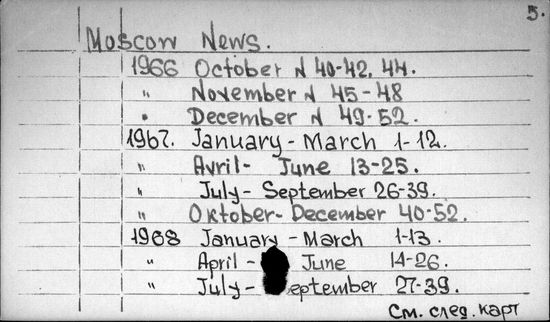 5.
Moscow News.
1966 October N 40-42, 44.
" November N 45-48
" December N 49-52.
1967. January-March 1-12.
" Avril- June 13-25.
" July- September 26-39.
" Oktober-December 40-52.
1968 January-March 1-13.
" April- June 14-26.
" July- eptember 27-39.
См. след. карт